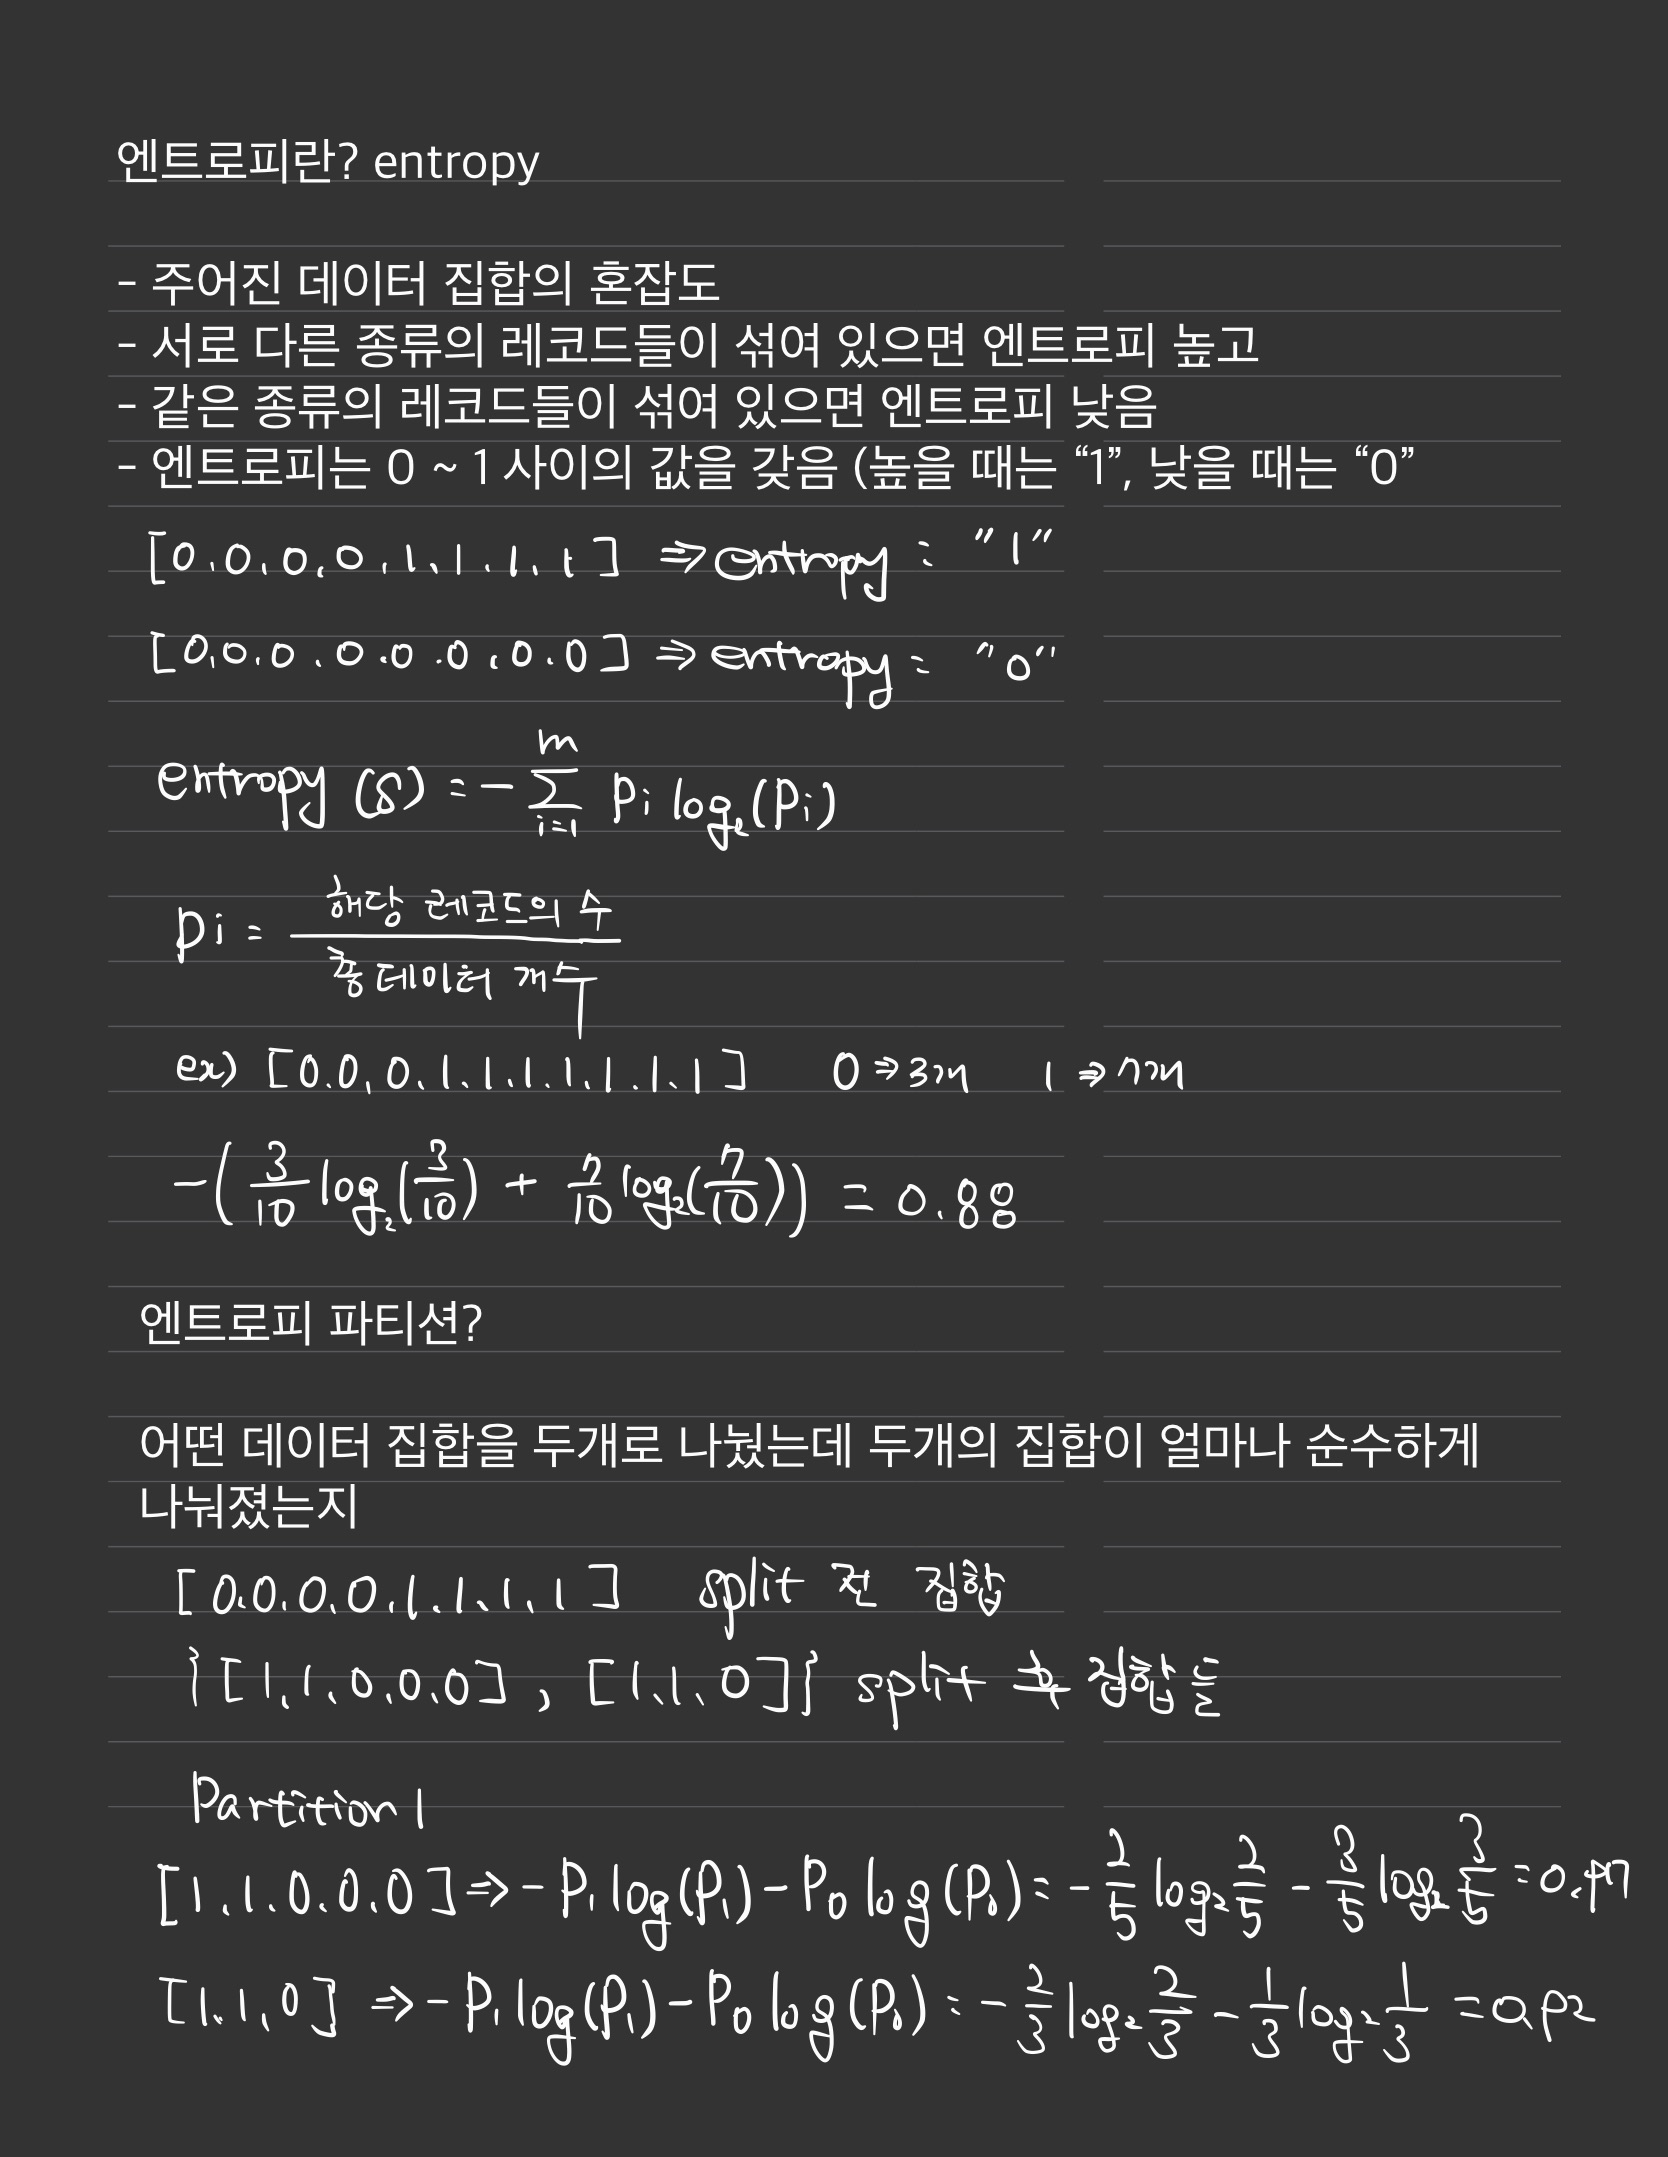 엔트로피란? entropy
- 주어진 데이터 집합의 혼잡도
- 서로 다른 종류의 레코드들이 섞여 있으면 엔트로피 높고
- 같은 종류의 레코드들이 섞여 있으면 엔트로피 낮음
- 엔트로피는 0 ~ 1 사이의 값을 갖음 (높을 때는 “1”, 낮을 때는 “0”
[0,0,0,0,1,1,1,1] ⇒ entropy : "1"
[0,0,0,0,0,0,0,0] ⇒ entropy : "0"
entropy (S) = - ∑_{i=1}^{m} Pi log₂(Pi)
Pi = 해당 레코드의 수 / 총 데이터 개수
ex) [0,0,0,1,1,1,1,1,1,1] 0 ⇒ 3개 1 ⇒ 7개
-(3/10 log₂(3/10) + 7/10 log₂(7/10)) = 0.88
엔트로피 파티션?
어떤 데이터 집합을 두개로 나눴는데 두개의 집합이 얼마나 순수하게
나눠졌는지
[0,0,0,0,1,1,1,1] split 전 집합
{[1,1,0,0,0], [1,1,0]} split 후 집합들
Partition 1
[1,1,0,0,0] ⇒ - P₁ log(P₁) - P₀ log(P₀) = - 2/5 log₂ 2/5 - 3/5 log₂ 3/5 = 0.97
[1,1,0] ⇒ - P₁ log(P₁) - P₀ log(P₀) = - 2/3 log₂ 2/3 - 1/3 log₂ 1/3 = 0.92